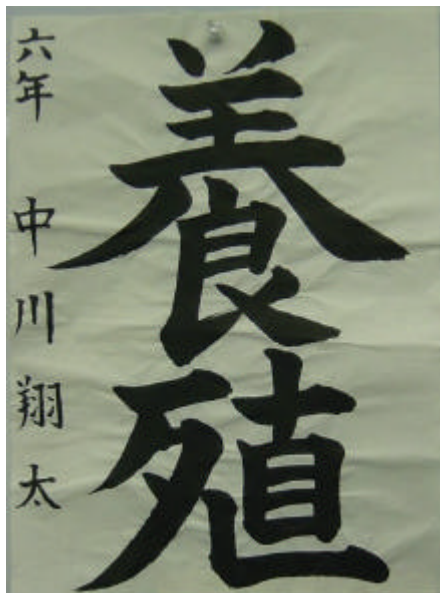 養殖
六年 中川翔太